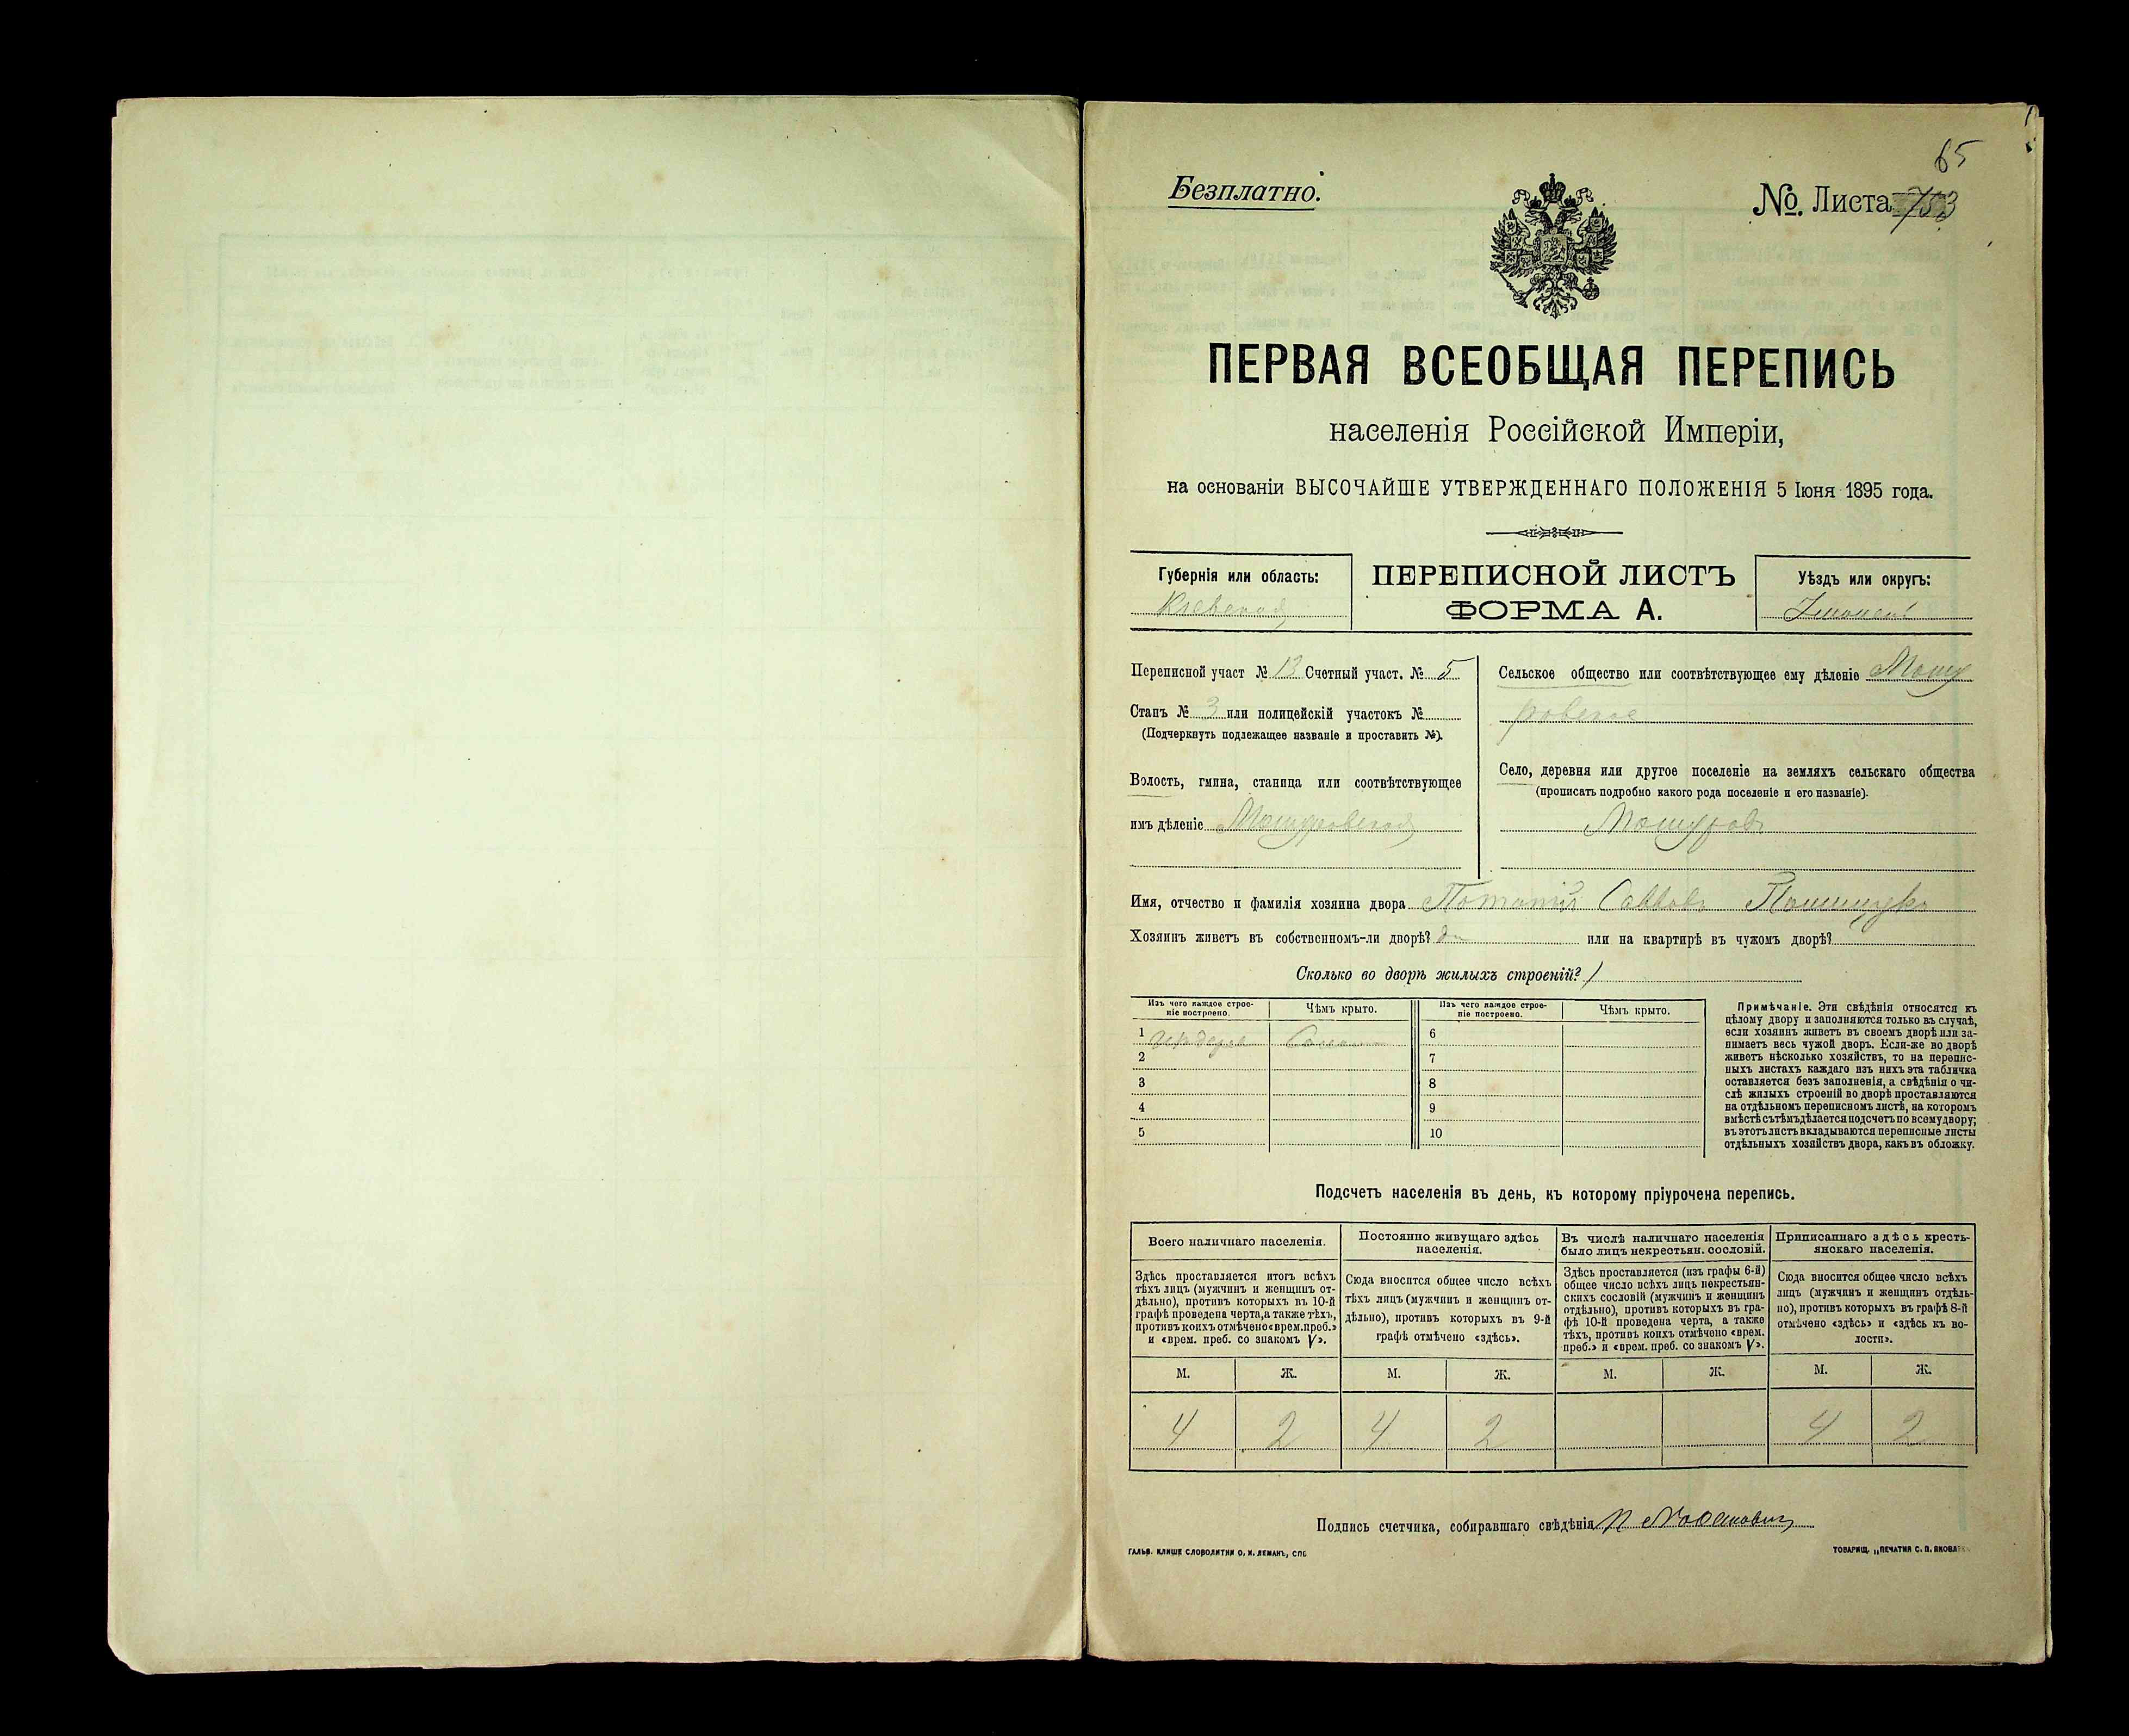 65
Безплатно.
№. Листа 753
ПЕРВАЯ ВСЕОБЩАЯ ПЕРЕПИСЬ
населенія Россійской Имперіи,
на основаніи ВЫСОЧАЙШЕ УТВЕРЖДЕННАГО ПОЛОЖЕНІЯ 5 Іюня 1895 года.
Губернія или область:
Кіевская
ПЕРЕПИСНОЙ ЛИСТЪ
ФОРМА А.
Уѣздъ или округъ:
Переписной участ № 13 Счетный участ. № 5
Станъ № 3 или полицейскій участокъ №
(Подчеркнуть подлежащее названіе и проставить №).
Волость, гмина, станица или соотвѣтствующее
имъ дѣленіе Машуровская
Сельское общество или соотвѣтствующее ему дѣленіе Машу
ровское
Село, деревня или другое поселеніе на земляхъ сельскаго общества
(прописать подробно какого рода поселеніе и его названіе).
Машуровъ
Имя, отчество и фамилія хозяина двора Потапій Саввовъ
Хозяинъ живетъ въ собственномъ-ли дворѣ? да или на квартирѣ въ чужомъ дворѣ?
Сколько во дворѣ жилыхъ строеній? 1
Изъ чего каждое строе-
ніе построено.
Чѣмъ крыто.
Изъ чего каждое строе-
ніе построено.
Чѣмъ крыто.
1 Соломою
2
3
4
5
6
7
8
9
10
Примѣчаніе. Эти свѣдѣнія относятся къ
цѣлому двору и заполняются только въ случаѣ,
если хозяинъ живетъ въ своемъ дворѣ или за-
нимаетъ весь чужой дворъ. Если-же во дворѣ
живетъ нѣсколько хозяйствъ, то на перепис-
ныхъ листахъ каждаго изъ нихъ эта табличка
оставляется безъ заполненія, а свѣдѣнія о чи-
слѣ жилыхъ строеній во дворѣ проставляются
на отдѣльномъ переписномъ листѣ, на которомъ
вмѣстѣ съ тѣмъ дѣлается подсчетъ по всему двору;
въ этотъ листъ вкладываются переписные листы
отдѣльныхъ хозяйствъ двора, какъ въ обложку.
Подсчетъ населенія въ день, къ которому пріурочена перепись.
Всего наличнаго населенія.
Здѣсь проставляется итогъ всѣхъ
тѣхъ лицъ (мужчинъ и женщинъ от-
дѣльно), противъ которыхъ въ 10-й
графѣ проведена черта, а также тѣхъ,
противъ коихъ отмѣчено «врем. преб.»
и «врем. преб. со знакомъ V».
М. Ж.
4 2
Постоянно живущаго здѣсь
населенія.
Сюда вносится общее число всѣхъ
тѣхъ лицъ (мужчинъ и женщинъ от-
дѣльно), противъ которыхъ въ 9-й
графѣ отмѣчено «здѣсь».
М. Ж.
4 2
Въ числѣ наличнаго населенія
было лицъ некрестьян. сословій.
Здѣсь проставляется (изъ графы 6-й)
общее число всѣхъ лицъ некрестьян-
скихъ сословій (мужчинъ и женщинъ
отдѣльно), противъ которыхъ въ гра-
фѣ 10-й проведена черта, а также
тѣхъ, противъ коихъ отмѣчено «врем.
преб.» и «врем. преб. со знакомъ V».
М. Ж.
Приписаннаго здѣсь кресть-
янскаго населенія.
Сюда вносится общее число всѣхъ
лицъ (мужчинъ и женщинъ отдѣль-
но), противъ которыхъ въ графѣ 8-й
отмѣчено «здѣсь» и «здѣсь къ во-
лости».
М. Ж.
4 2
Подпись счетчика, собиравшаго свѣдѣнія
ГАЛЬВ. КЛИШЕ СЛОВОЛИТНИ О. И. ЛЕМАНЪ, СПБ
ТОВАРИЩ. „ПЕЧАТНЯ С. П. ЯКОВЛ